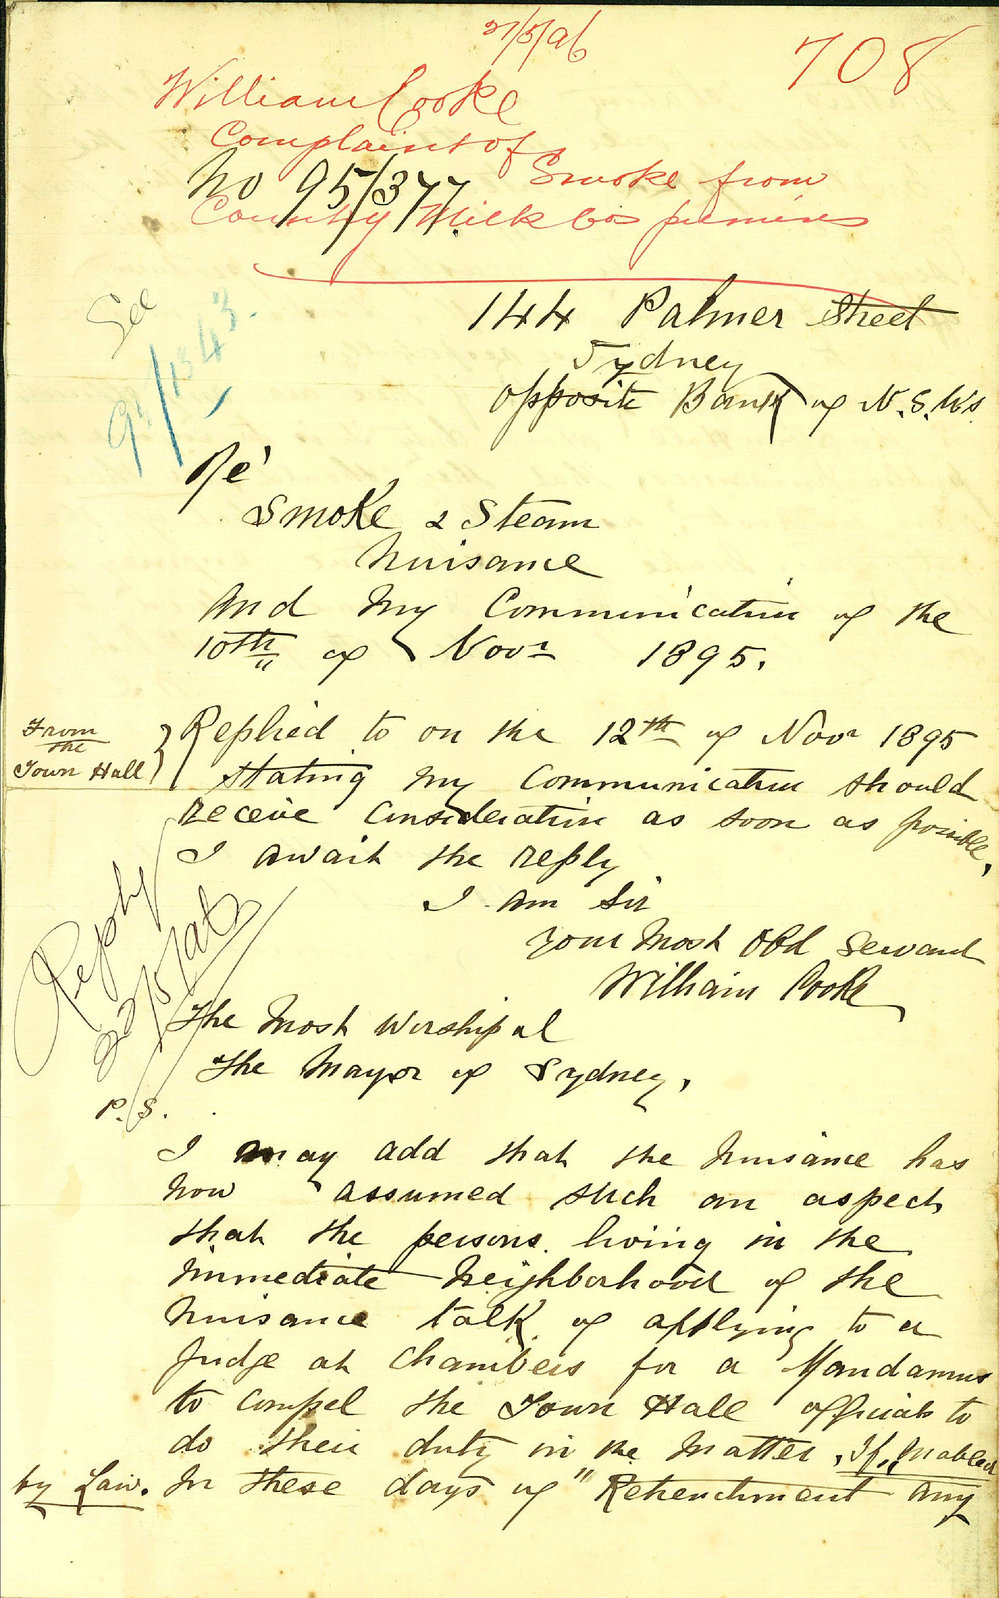 27/5/96
708
William Cooke
Complaint of
Smoke from
No 95/377
Country Milk Co's premises
See
144 Palmer Street
Sydney
opposite Bank of N.S.W's
Re'
Smoke & Steam
Nuisance
And My Communication of the
10th of Novr 1895.
From
the
Town Hall
Replied to on the 12th of Novr 1895
stating my Communication should
receive Consideration as soon as possible,
I await the reply
I am Sir
your Most Obd Servant
William Cooke
Reply
The Most Worshipal
The Mayor of Sydney,
P.S.
I may add that the Nuisance has
now assumed such an aspect
that the persons living in the
immediate Neighborhood of the
Nuisance talk of applying to a
Judge at Chambers for a Mandamus
to compel the Town Hall officials to
do their duty in the Matter, If,
by Law. In these days of "Retrenchment any